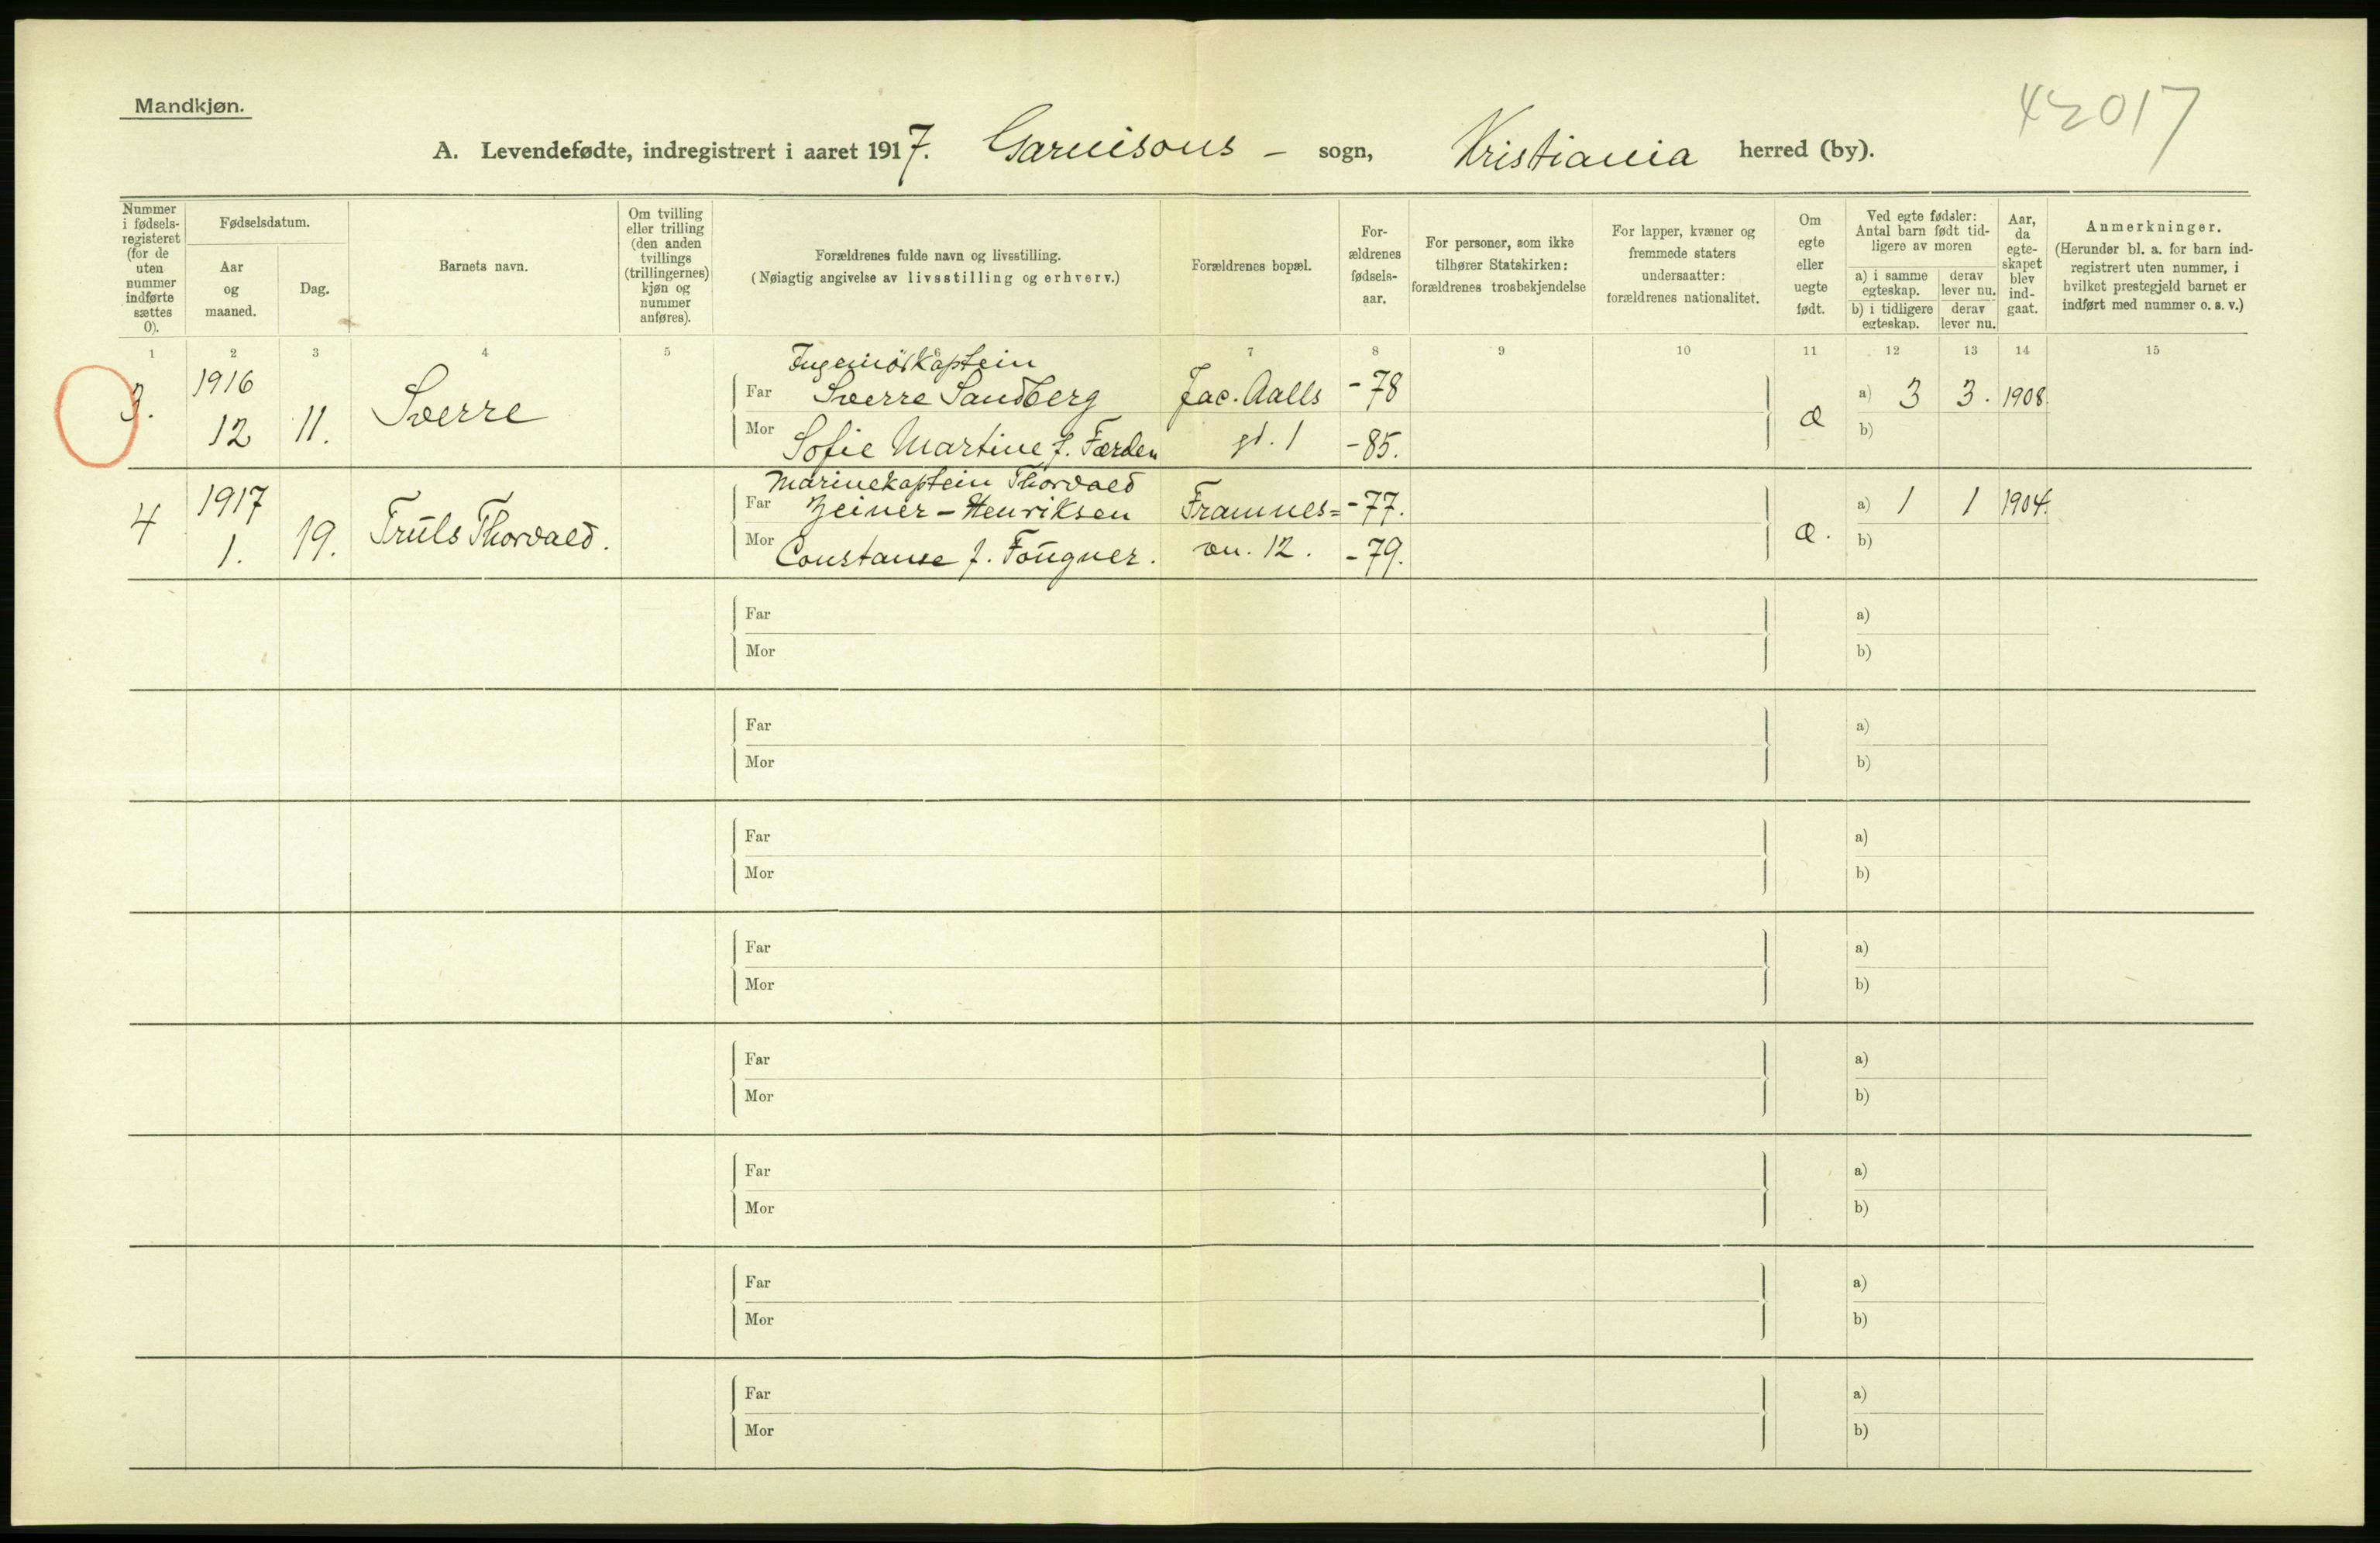 Mandkjøn.
42017
A. Levendefødte, indregistrert i aaret 1917. Garnisons – sogn, Kristiania herred (by).
Nummer i fødselsregisteret (for de uten nummer indførte sættes 0).
Fødselsdatum.
Aar og maaned.
Dag.
Barnets navn.
Om tvilling eller trilling (den anden tvillings (trillingernes) kjøn og nummer anføres).
Forældrenes fulde navn og livsstilling.
(Nøiagtig angivelse av livsstilling og erhverv.)
Forældrenes bopæl.
For-ældrenes fødsels-aar.
For personer, som ikke tilhører Statskirken: forældrenes trosbekjendelse
For lapper, kvæner og fremmede staters undersaatter: forældrenes nationalitet.
Om egte eller uegte født.
Ved egte fødsler: Antal barn født tidligere av moren
a) i samme egteskap.
derav lever nu.
b) i tidligere egteskap.
derav lever nu.
Aar, da egteskapet blev indgaat.
Anmerkninger.
(Herunder bl. a. for barn indregistrert uten nummer, i hvilket prestegjeld barnet er indført med nummer o. s. v.)
1 2 3 4 5 6 7 8 9 10 11 12 13 14 15
3. 1916 12 11. Sverre
Ingeniørkaptein
Far Sverre Sandberg Jac. Aalls -78
Mor Sofie Martine f. Færden gt. 1 -85.
æ a) 3 3. 1908.
b)
4 1917 1. 19. Truls Thorvald.
Marinekaptein Thorvald
Far Zeiner-Henriksen Framnes= -77.
Mor Constanse f. Fougner. vn. 12. -79.
æ. a) 1 1 1904.
b)
Far a)
Mor b)
Far a)
Mor b)
Far a)
Mor b)
Far a)
Mor b)
Far a)
Mor b)
Far a)
Mor b)
Far a)
Mor b)
Far a)
Mor b)